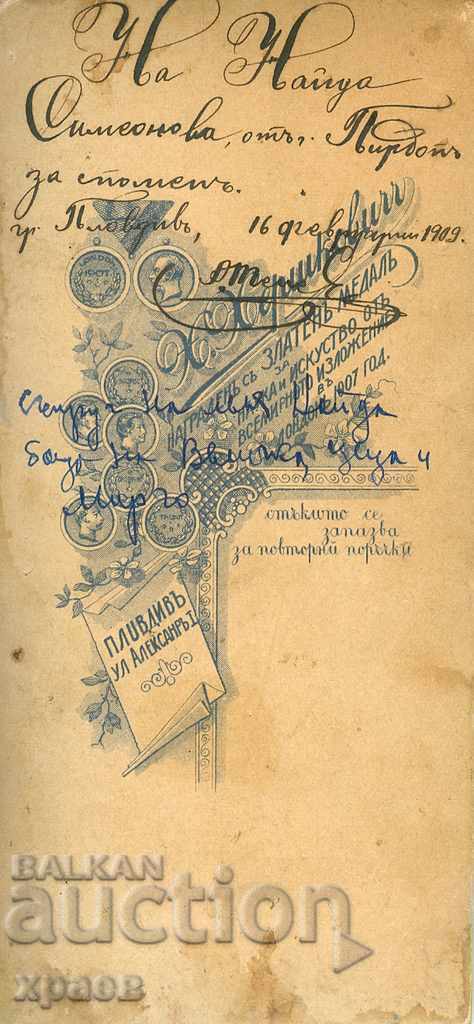 На Найда
Симеонова, отъ г. Пирдопъ
за споменъ.
гр. Пловдивъ, 16 февруарии 1909.
LONDON
1907
Х. Хершковичъ
НАГРАДЕНЪ СЪ ЗЛАТЕНЪ МЕДАЛЪ
ЗА
НАУКА И ИСКУСТВО ОТЪ
ВСЕМИРНИЙ ИЗЛОЖЕНИЕ
ВЪ
ЛОНДОНЪ 1907 ГОД.
на Найда
на Величка, Цеца и
Мирчо
стъкмито се
запазва
за повторни поръчки
ПЛОВДИВЪ
УЛ АЛЕКСАНРЪ I
BALKAN
auction
храов